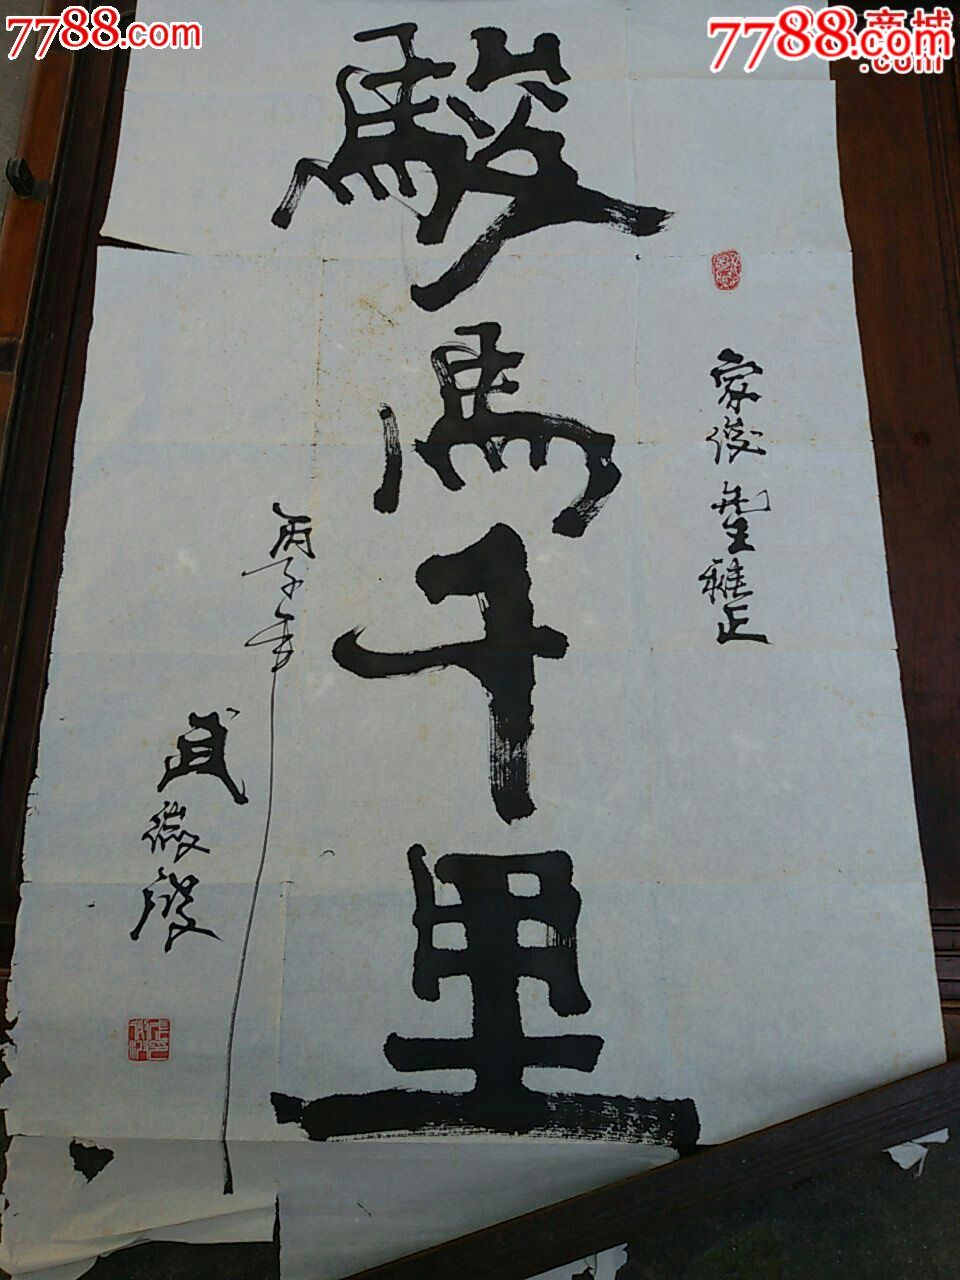 7788.com
7788商城
.com
駿馬千里
家俊先生雅正
丙子年